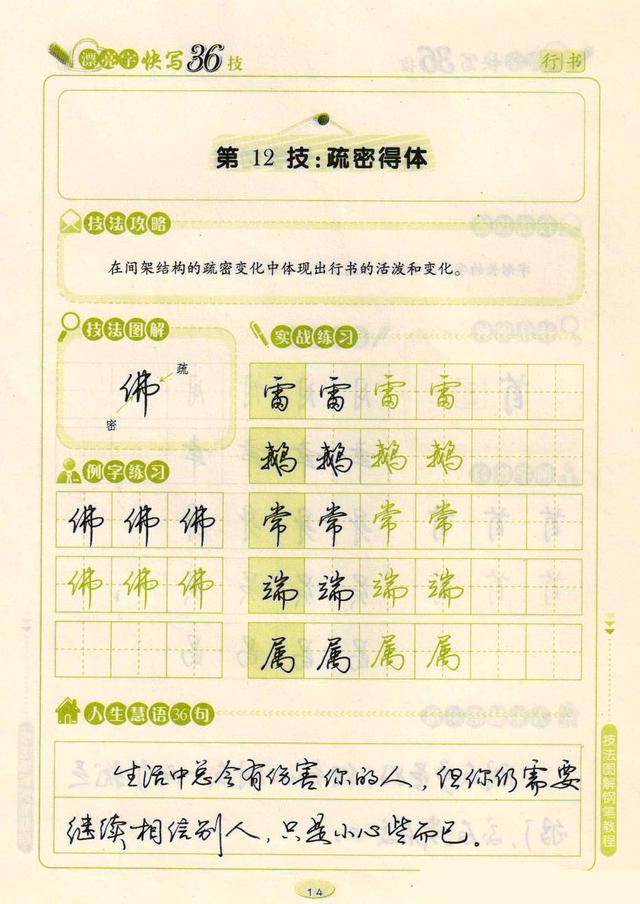 漂亮字快写36技
行书
第12技:疏密得体
技法攻略
在间架结构的疏密变化中体现出行书的活泼和变化。
技法图解
佛
疏
密
例字练习
佛佛佛
佛佛佛
实战练习
雷雷雷雷
鹅鹅鹅鹅
常常常常
端端端端
属属属属
人生慧语36句
生活中总会有伤害你的人，但你仍需要
继续相信别人，只是小心些而已。
技法图解钢笔教程
14